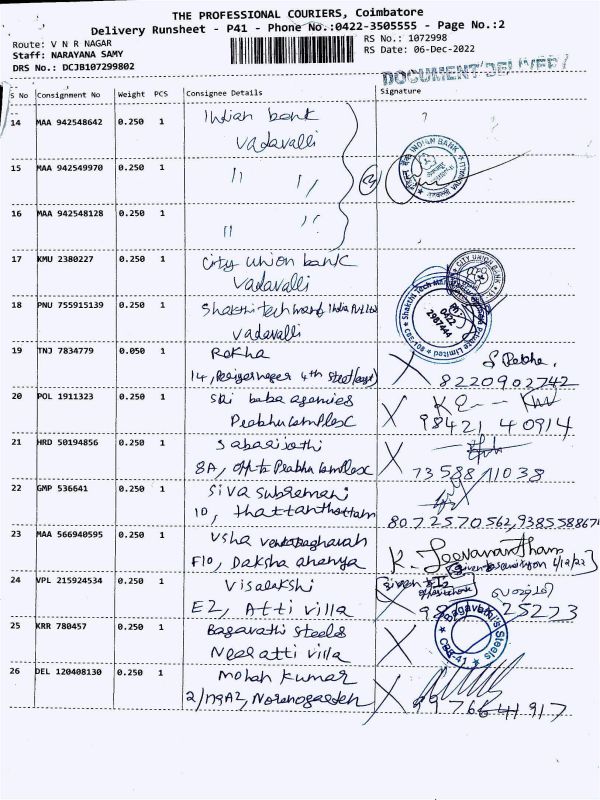 THE PROFESSIONAL COURIERS, Coimbatore
Delivery Runsheet - P41 - Phone No.:0422-3505555 - Page No.:2
Route: V N R NAGAR
RS No.: 1072998
Staff: NARAYANA SAMY
RS Date: 06-Dec-2022
DRS No.: DCJB107299802
DOCUMENT DELIVERY
S No Consignment No Weight PCS Consignee Details Signature
14 MAA 942548642 0.250 1 Indian bank ?
Vadavalli
INDIAN BANK
15 MAA 942549970 0.250 1 " "
3
16 MAA 942548128 0.250 1 " "
17 KMU 2380227 0.250 1 City Union bank
Vadavalli
CITY UNION BANK
18 PNU 755915139 0.250 1 Shakthi tech India Pvt Ltd
Vadavalli
Shakthi Tech Private Limited
PH
0422
2987444
19 TNJ 7834779 0.050 1 Rokha
14, 4th street
8220902742
20 POL 1911323 0.250 1 Sri baba agencies
Prabhu Complex 98421 40914
21 HRD 50194856 0.250 1 Sabarijothi
8A, opp to Prabhu Complex 73588 11038
22 GMP 536641 0.250 1 Siva Subramani
10, thattanthottam
8072570562, 938558867
23 MAA 566940595 0.250 1 Usha
F10, Daksha ananya K. Jeevanantham
24 VPL 215924534 0.250 1 Visalakshi
E2, Atti villa 25273
25 KRR 780457 0.250 1 Bagavathi Steels
Near atti villa
Bagavathi Steels
CBE-41
26 DEL 120408130 0.250 1 Mohan Kumar
9976641917